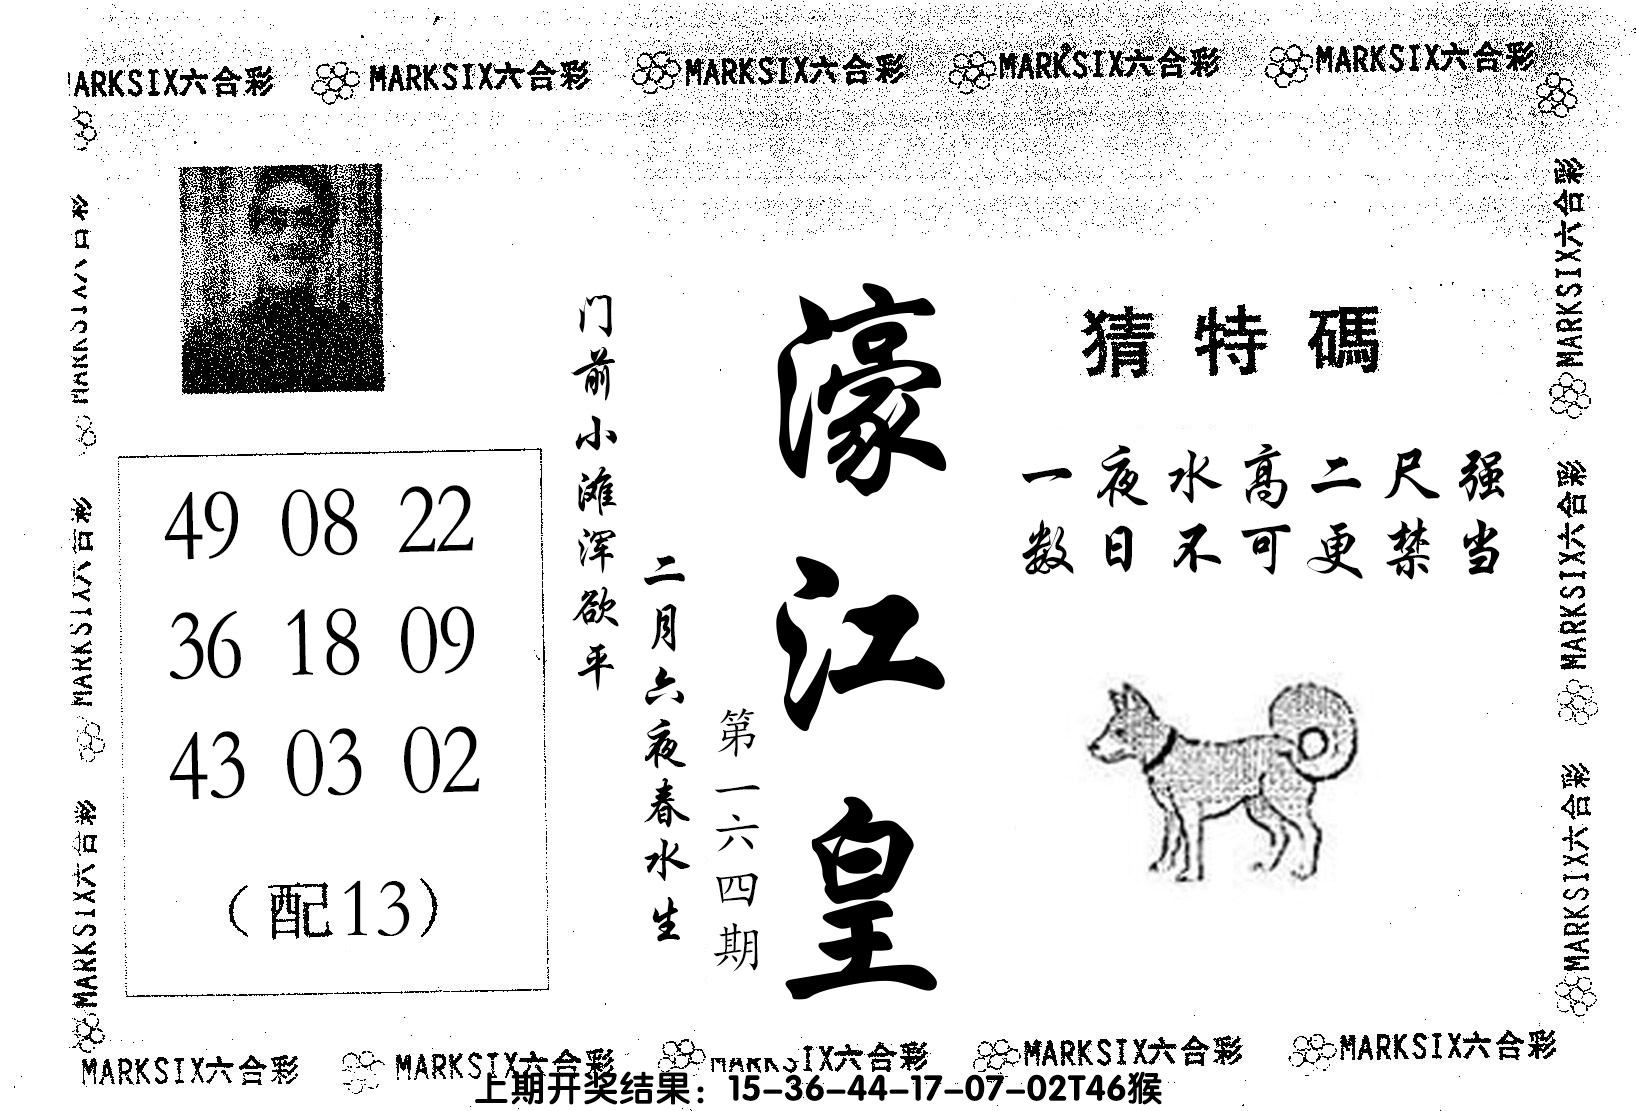 MARKSIX六合彩 MARKSIX六合彩 MARKSIX六合彩 MARKSIX六合彩 MARKSIX六合彩
猜特碼
一夜水高二尺强
数日不可更禁当
濠江皇
第一六四期
门前小滩浑欲平
二月六夜春水生
49 08 22
36 18 09
43 03 02
（配13）
MARKSIX六合彩
MARKSIX六合彩
MARKSIX六合彩
MARKSIX六合彩
MARKSIX六合彩
MARKSIX六合彩
MARKSIX六合彩 MARKSIX六合彩 MARKSIX六合彩 MARKSIX六合彩 MARKSIX六合彩
上期开奖结果：15-36-44-17-07-02T46猴